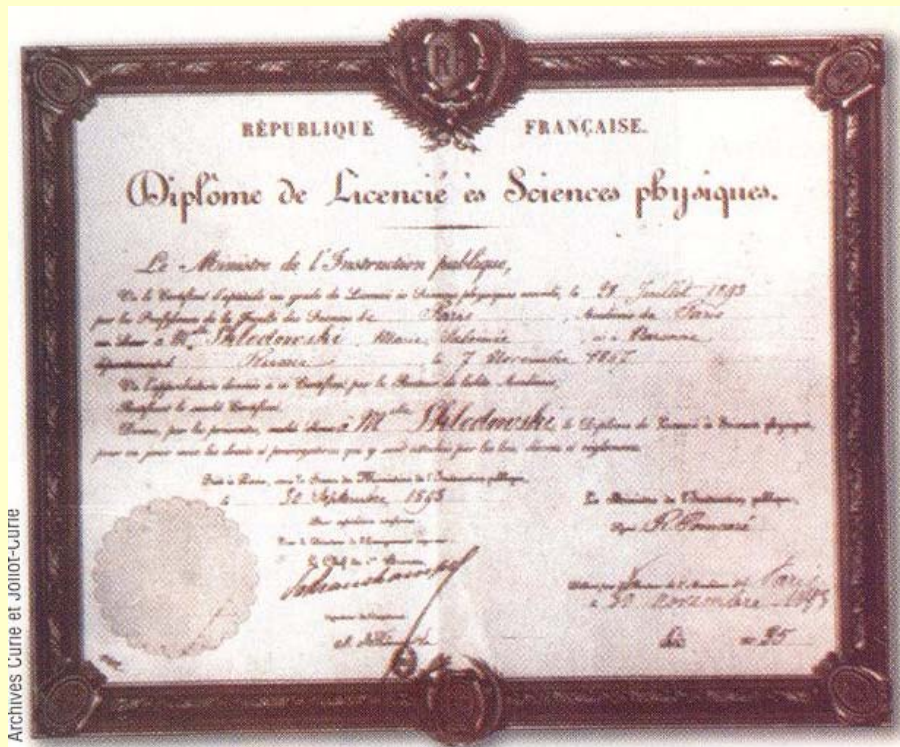 RÉPUBLIQUE FRANÇAISE.
Diplôme de Licencié ès Sciences physiques.
Le Ministre de l'Instruction publique,
Vu le Certificat d'aptitude au grade de Licencié ès Sciences physiques accordé, le Juillet 1893
par les Professeurs de la Faculté des Sciences de Paris, Académie de Paris
à Mlle Sklodowski, Marie
département Russie le 7 Novembre 1867
Vu l'approbation donnée à ce Certificat par le Recteur de ladite Académie,
Ratifiant le susdit Certificat,
Donne, par les présentes, à Mlle Sklodowski, le Diplôme de Licencié ès Sciences physiques,
pour en jouir avec les droits et prérogatives qui y sont attachés par les lois, décrets et règlements.
Fait à Paris, sous le Sceau du Ministère de l'Instruction publique,
le Septembre 1893
Le Ministre de l'Instruction publique,
Signé R. Poincaré
Le Chef du Bureau,
Paris
30 novembre 1893
25
Archives Curie et Joliot-Curie